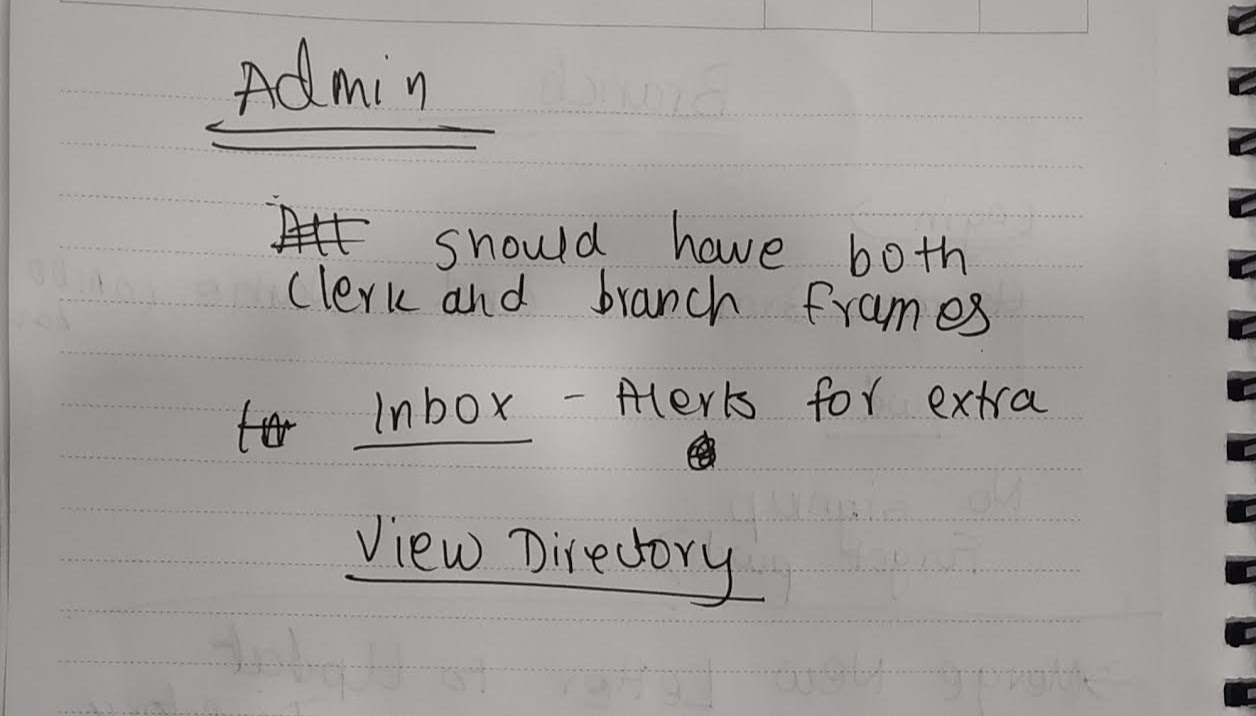 Admin
should have both
Clerk and branch frames
Inbox - Alerts for extra
View Directory